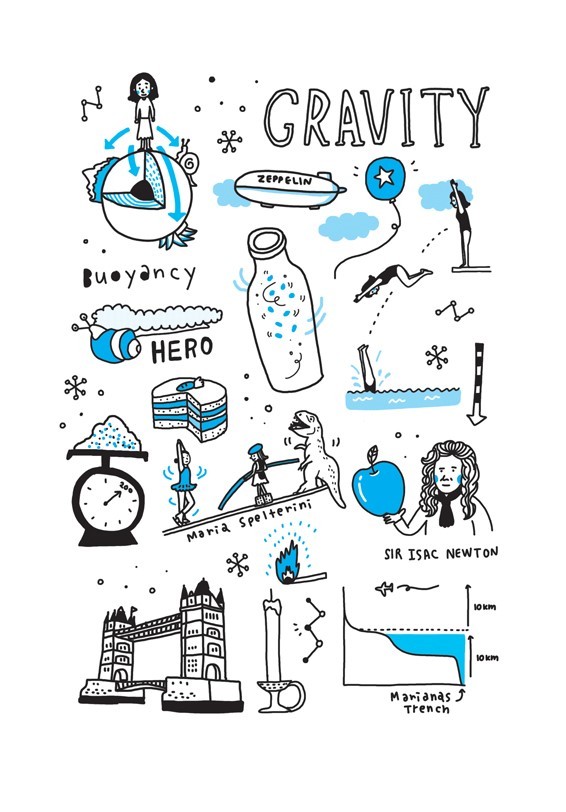 GRAVITY
ZEPPELIN
Buoyancy
HERO
200
Maria Spelterini
SIR ISAC NEWTON
10km
10km
Marianas
Trench